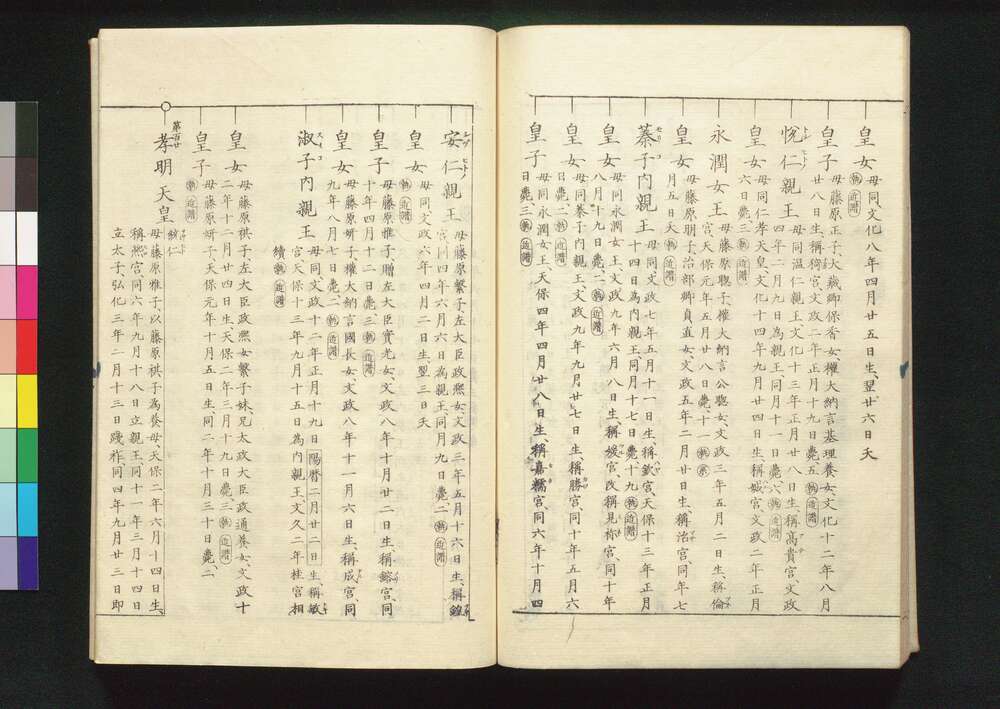 皇女 母同文化八年四月廿五日生、翌廿六日夭
執 近譜
皇子 母藤原正子、大藏卿保香女、權大納言基理養女、文化十二年八月
廿八日生、稱 宮文政二年正月十九日薨、五 執 近譜
悅仁親王 母同溫仁親王、文化十三年正月廿八日生、稱高貴宮、文政
四年二月九日為親王、同月十一日薨、六 執 近譜
皇女 母同仁孝天皇、文化十四年九月廿四日生、稱娍宮、文政二年正月
六日薨、三 執 近譜
永潤女王 母藤原聰子、權大納言公聰女、文政三年五月二日生、稱倫
宮、天保元年五月廿八日薨、十一 執 系
皇女 母藤原朋子、治部卿貞直女、文政五年二月廿日生、稱治宮、同年七
月五日夭 執 近譜
蓁子內親王 母同文政七年五月十一日生、稱欽宮、天保十三年正月
十四日為內親王、同月十七日薨、十九 執 近譜
皇女 母同永潤女王、文政九年六月八日生、稱媛宮、改稱見祢宮、同十年
八月十九日薨、二 執 近譜
皇女 母同蓁子內親王、文政九年九月廿七日生、稱勝宮、同十年五月六
日薨、二 執 近譜
皇子 母同永潤女王、天保四年四月廿八日生、稱嘉糯宮、同六年十月四
日薨、三 執 近譜
安仁親王 母藤原繫子、左大臣政熙女、文政三年五月十六日生、稱鍠
宮、同四年六月六日為親王、同月九日薨、二 執 近譜
皇女 母同文政六年四月二日生、翌三日夭
執 近譜
皇子 母藤原雅子、贈左大臣實光女、文政八年十月廿二日生、稱鎔宮、同
十年四月十二日薨、三 執 近譜
皇女 母藤原妍子、權大納言國長女、文政八年十一月六日生、稱成宮、同
九年八月七日薨、二 執 近譜
淑子內親王 母同文政十二年正月十九日 陽曆二月廿二日 生、稱敏
宮、天保十三年九月十五日為內親王、文久二年桂宮相
續 執 近譜
皇女 母藤原祺子、左大臣政熙女、繫子妹、兄太政大臣政通養女、文政十
二年十二月廿四日生、天保二年三月十九日薨、三 執 近譜
皇子 母藤原妍子、天保元年十月五日生、同二年十月三十日薨、二
執 近譜
第百廿
孝明天皇 統仁 母藤原雅子、以藤原祺子為養母、天保二年六月十四日生、
稱熙宮、同六年九月十八日立親王、同十一年三月十四日
立太子、弘化三年二月十三日踐祚、同四年九月廿三日即